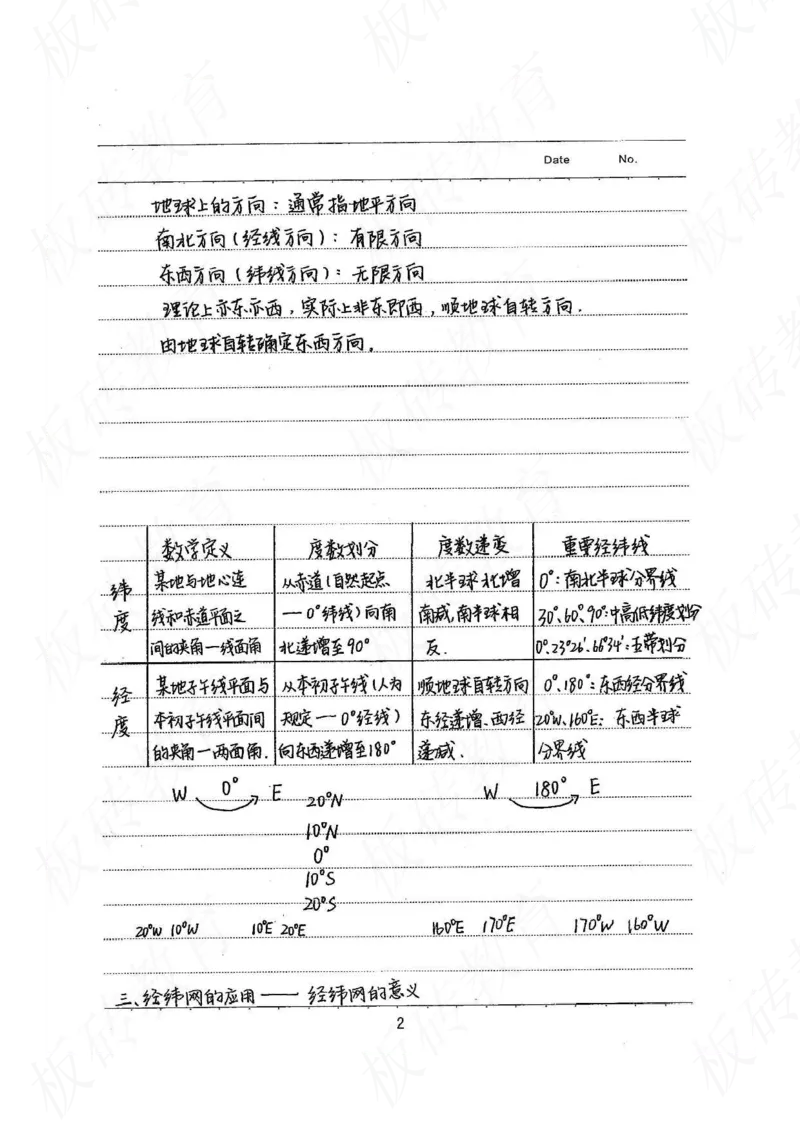 Date No.
地球上的方向：通常指地平方向
南北方向（经线方向）：有限方向
东西方向（纬线方向）：无限方向
理论上亦东亦西，实际上非东即西，顺地球自转方向．
由地球自转确定东西方向．
数学定义 度数划分 度数递变 重要经纬线
纬度
某地与地心连 从赤道（自然起点 北半球北增 0°：南北半球分界线
线和赤道平面之 — 0°纬线）向南 南减，南半球相 30°、60°、90°：中高低纬度划分
间的夹角—线面角 北递增至90° 反． 0°、23°26′、66°34′：五带划分
经度
某地子午线平面与 从本初子午线（人为 顺地球自转方向 0°、180°：东西经分界线
本初子午线平面间 规定 — 0°经线） 东经递增、西经 20°W、160°E：东西半球
的夹角—两面角． 向东西递增至180° 递减． 分界线
W 0° E 20°N W 180° E
10°N
0°
10°S
20°S
20°W 10°W 10°E 20°E 160°E 170°E 170°W 160°W
三、经纬网的应用 —— 经纬网的意义
2
板砖教育